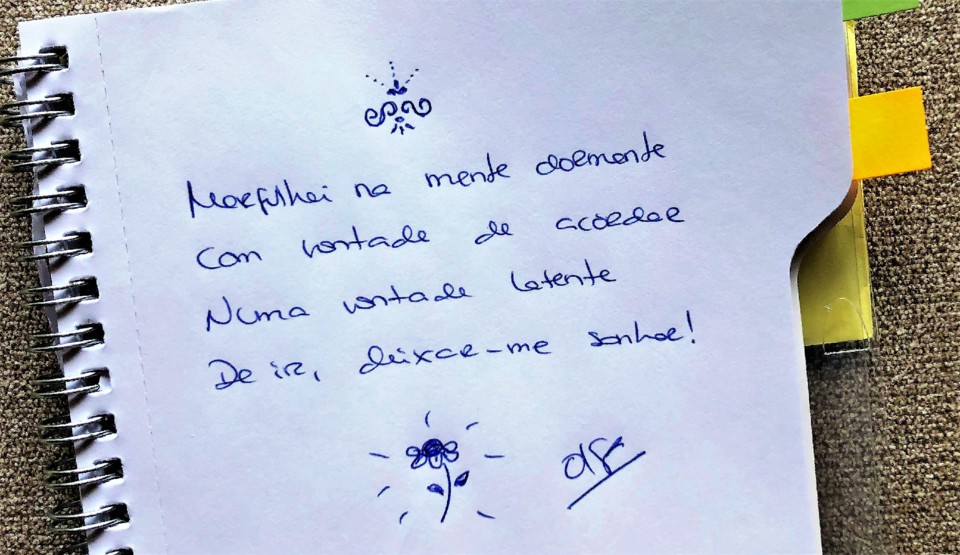 Mergulhei na mente dormente
Com vontade de acordar
Numa vontade latente
De ir, deixar-me sonhar!